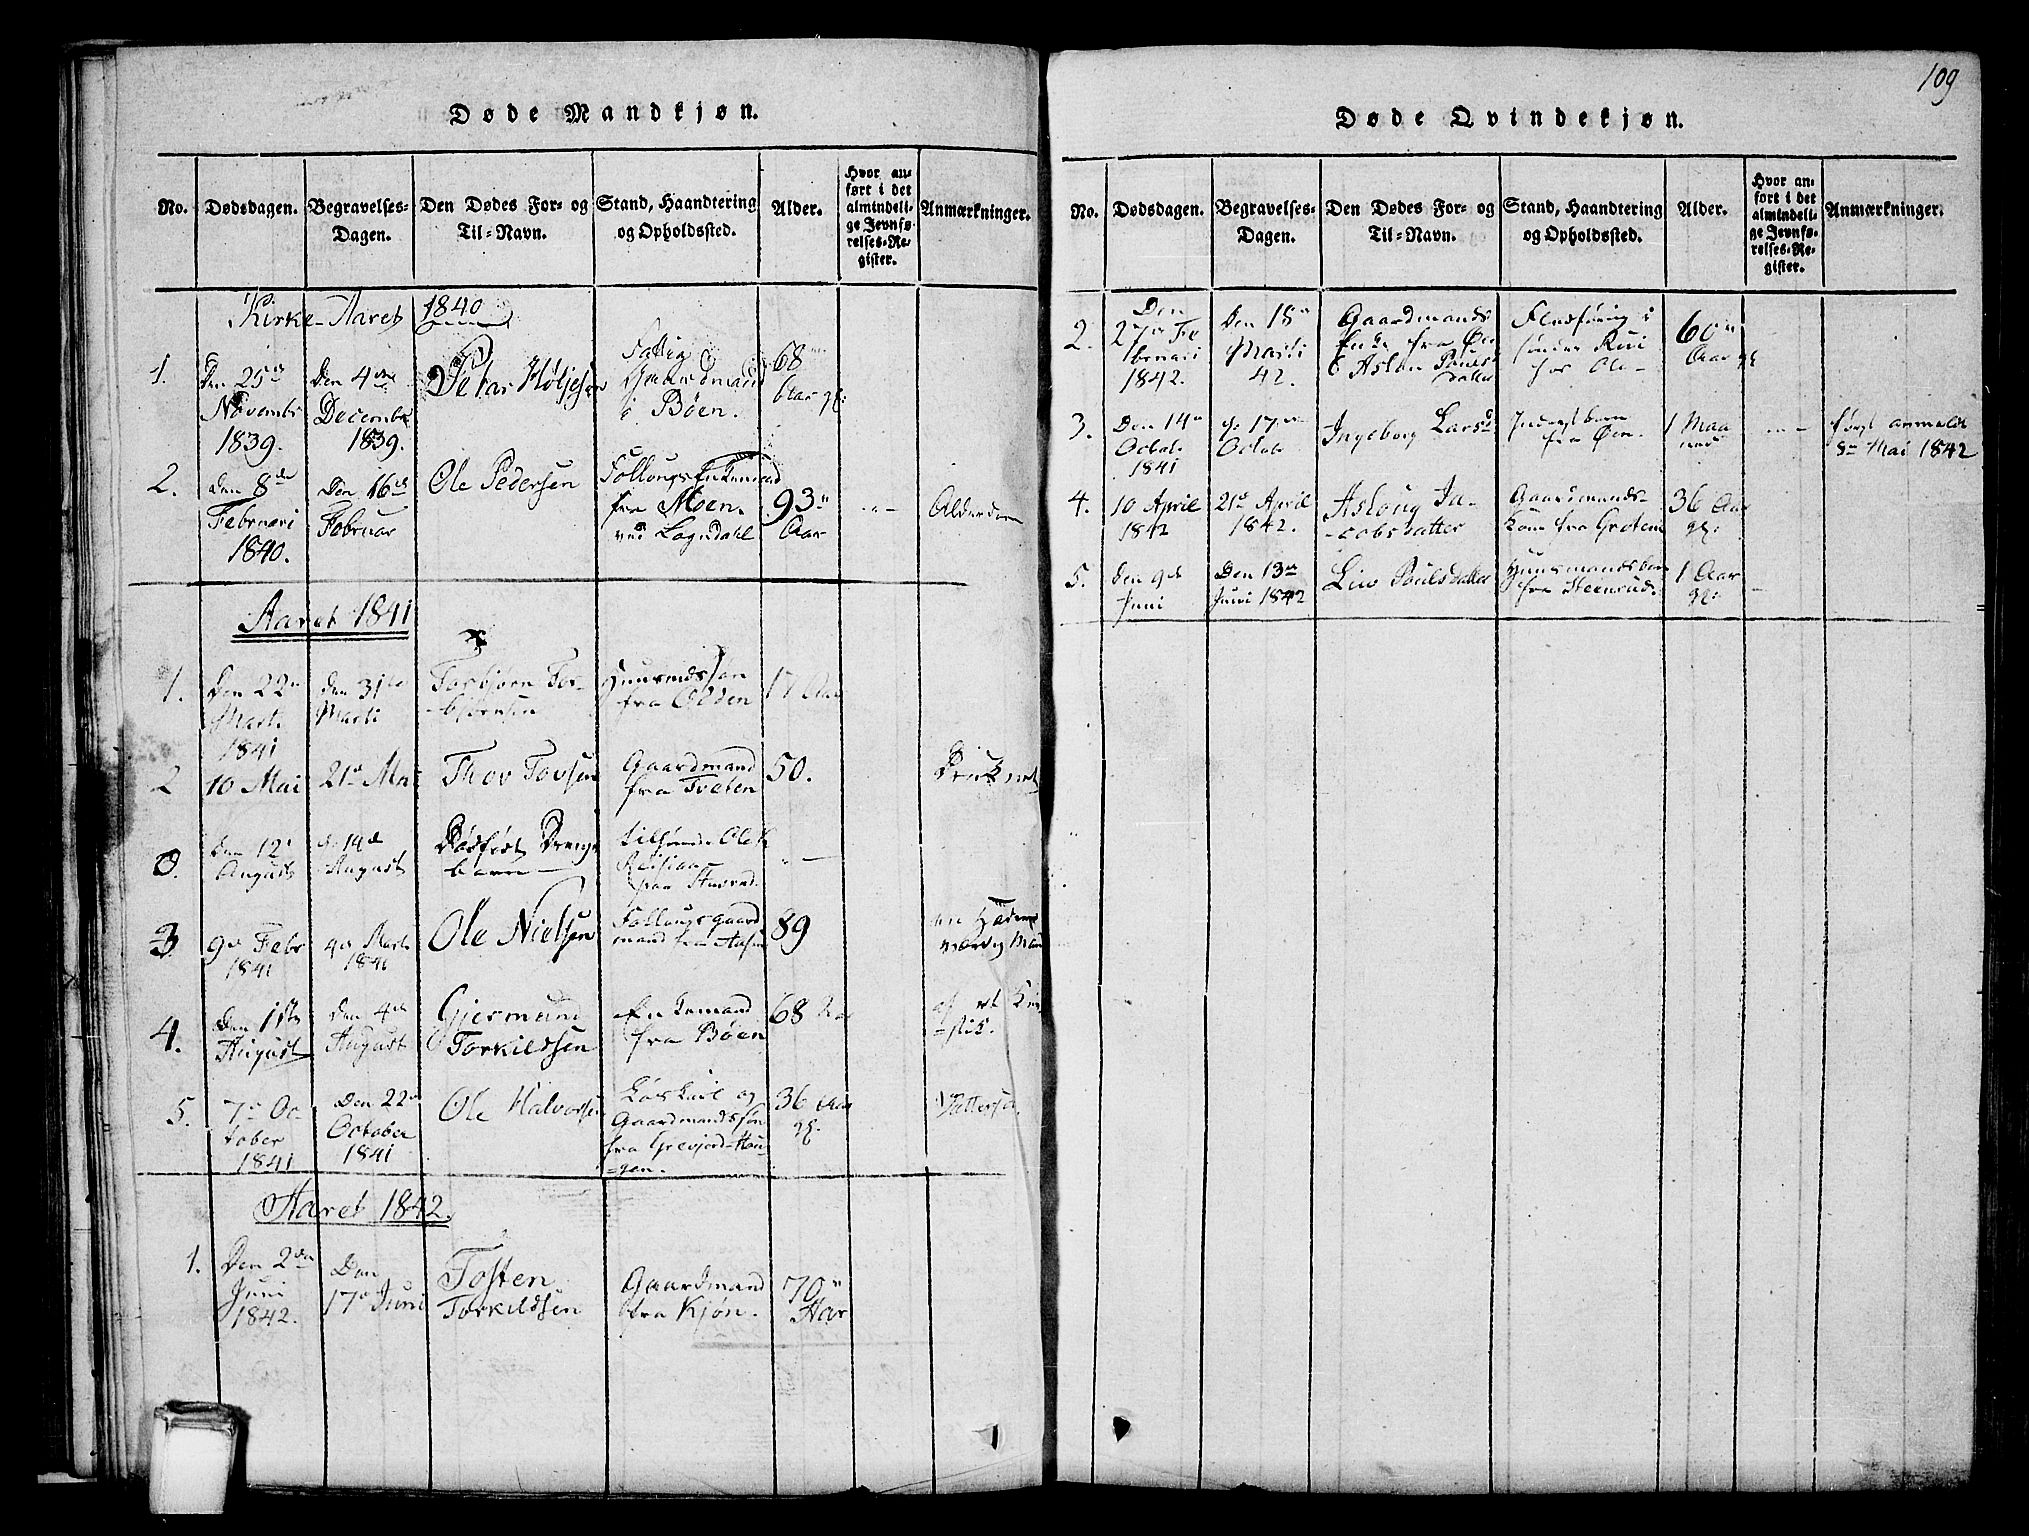 109
Døde Mandkjøn.
No.
Dødsdagen.
Begravelses-
Dagen.
Den Dødes For- og
Til-Navn.
Stand, Haandtering
og Opholdssted.
Alder.
Hvor an-
ført i det
almindeli-
ge Jevnfø-
relses-Re-
gister.
Anmærkninger.
Kirke-Aaret 1840
1.
Den 25de
Novembr
1839.
Den 4de
Decembr
1839.
Petar Høljesen
Fattig
Gaardmand
i Bøen.
68
Aar gl:
2.
Den 8de
Februari
1840.
Den 16de
Februar
Ole Pedersen
Follaugs Enkemand
fra Moen.
ved Lagndahl
93
Aar
Alderdom
Aaret 1841
1.
Den 22
Marti
1841
Den 31te
Marti
Torbjørn Tor-
-bjørnsen
Huusmdssøn
fra Odden
17 Aar
2
10 Mai
21de Mai
Thov Tovsen
Gaardmand
fra Tveten
50.
Druknet
0.
Den 12
August
d. 14de
August
Dødfødt Drenge
barn
3
9de Febr
1841
4de Marti
1841
Ole Nielsen
Follaugsgaard
mand fra Aasen
89
en Hæder
værdig Mand
4.
Den 1ste
August
Den 4de
August
Gjermund
Torkildsen
Enkemand
fra Bøen
68 Aar
5.
7de Oc
tober
1841
Den 22de
October
1841
Ole Halvorsen
Løskarl og
Gaardmandssøn
fra Grevjord-Hau-
-gen.
36 Aar
gl.
Aaret 1842.
1.
Den 2den
Juni
1842.
Den
17de Juni
Tosten
Torkildsen
Gaardmand
fra Kjøn.
70
Aar
Døde Qvindekjøn.
No.
Dødsdagen.
Begravelses-
Dagen.
Den Dødes For- og
Til-Navn.
Stand, Haandtering
og Opholdssted.
Alder.
Hvor an-
ført i det
almindeli-
ge Jevnfø-
relses-Re-
gister.
Anmærkninger.
2.
Den
27de Fe
bruari
1842.
Den 18de
Marti
42.
Gaardmands
Enke fra Øen
Aslau Pouls
datter
hos Ole
60
Aar gl
3.
Den 14de
Octob.
1841
d. 17de
Octobr
Ingeborg Larsd
fra Øen.
1 Maa
ned
først anmeldt
8de Mai 1842
4.
10 April
1842
21de April
1842.
Asloug Ja-
-cobsdatter
Gaardmands-
Kone fra Grotem
36 Aar
gl:
5.
Den 9de
Juni
Den 13de
Juni 1842
Liv Poulsdatter
Huusmandsbarn
fra Steensrud.
1 Aar
gl: